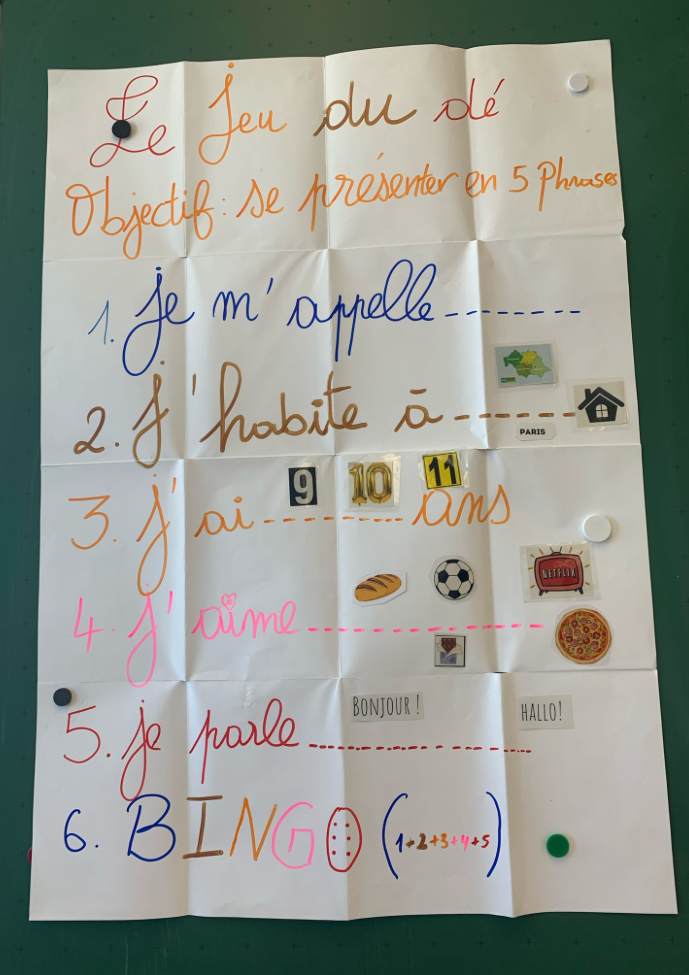 Le jeu du dé
Objectif : se présenter en 5 Phrases
1. je m'appelle -------
2. j'habite à -------
PARIS
9 10 11
3. j'ai -------- ans
NETFLIX
4. j'aime ---------------
BONJOUR ! HALLO!
5. je parle ................
6. BINGO (1+2+3+4+5)